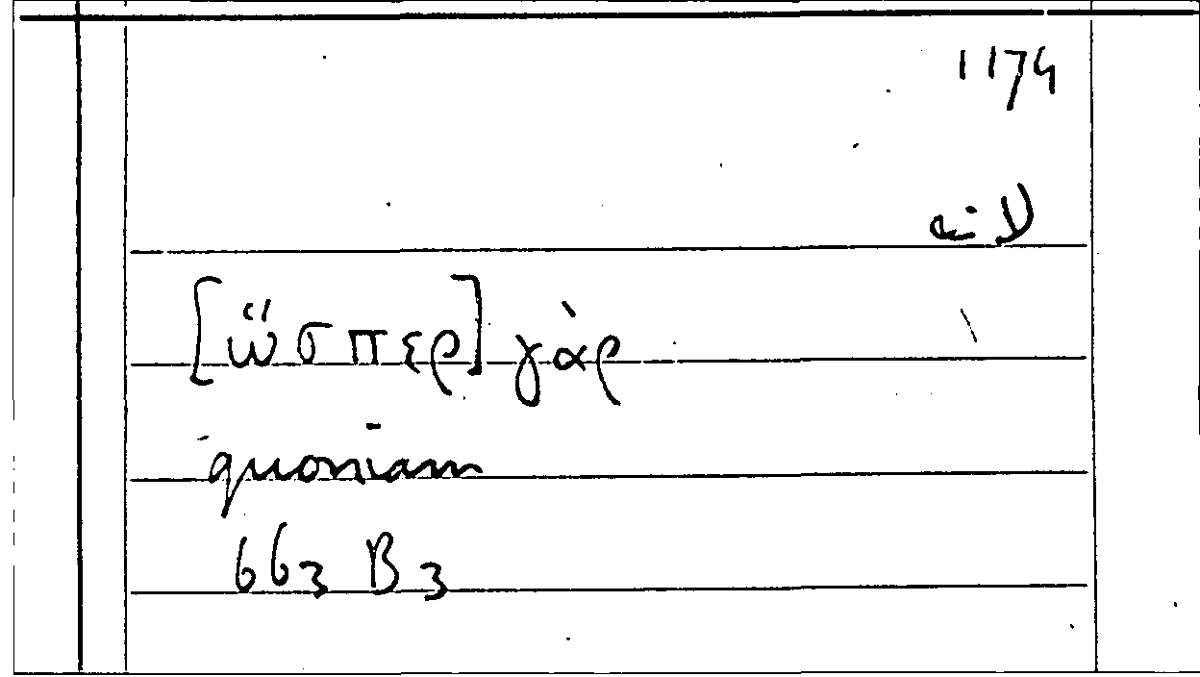 1174
لانه
[ὥσπερ] γὰρ
quoniam
663 B 3